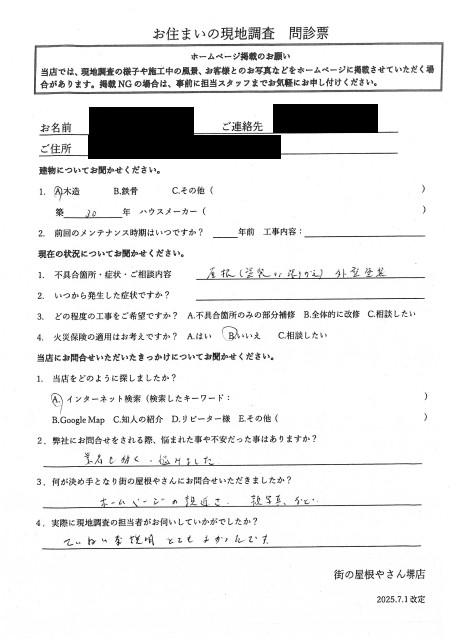 お住まいの現地調査　問診票
ホームページ掲載のお願い
当店では、現地調査の様子や施工中の風景、お客様とのお写真などをホームページに掲載させていただく場
合があります。掲載NGの場合は、事前に担当スタッフまでお気軽にお申し付けください。
お名前　ご連絡先
ご住所
建物についてお聞かせください。
1. A.木造　B.鉄骨　C.その他（　）
築 20 年　ハウスメーカー（　）
2. 前回のメンテナンス時期はいつですか？　年前　工事内容：
現在の状況についてお聞かせください。
1. 不具合箇所・症状・ご相談内容　屋根（塗装 張りかえ）外壁塗装
2. いつから発生した症状ですか？
3. どの程度の工事をご希望ですか？ A.不具合箇所のみの部分補修　B.全体的に改修　C.相談したい
4. 火災保険の適用はお考えですか？ A.はい　B.いいえ　C.相談したい
当店にお問合せいただいたきっかけについてお聞かせください。
1. 当店をどのように探しましたか？
A. インターネット検索（検索したキーワード：　）
B.Google Map　C.知人の紹介　D.リピーター様　E.その他（　）
2. 弊社にお問合せをされる際、悩まれた事や不安だった事はありますか？
業者も多く 悩みました
3. 何が決め手となり街の屋根やさんにお問合せいただきましたか？
ホームページの 写真、など
4. 実際に現地調査の担当者がお伺いしていかがでしたか？
ていねいな説明 とてもよかったです
街の屋根やさん堺店
2025.7.1 改定